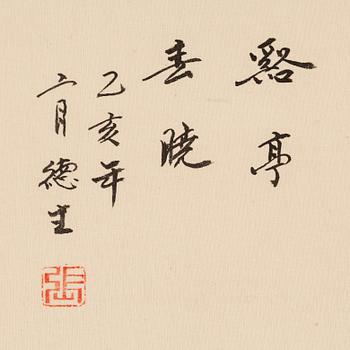 谿亭
春曉
乙亥年
六月德生